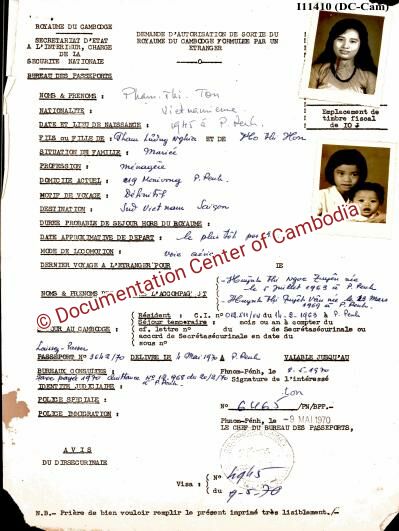 I11410 (DC-Cam)
ROYAUME DU CAMBODGE
SECRETARIAT D'ETAT
A L'INTERIEUR, CHARGE
DE LA
SECURITE NATIONALE
BUREAU DES PASSEPORTS
DEMANDE D'AUTORISATION DE SORTIE DU
ROYAUME DU CAMBODGE FORMULEE PAR UN
ETRANGER
Emplacement de
timbre fiscal
de 10
NOMS & PRENOMS : Pham. Thi. Ton
NATIONALITE : Vietnamienne
DATE ET LIEU DE NAISSANCE : 1945 à P. Penh
FILS ou FILLE DE : Pham Nghia ET DE Ho Thi Hon
SITUATION DE FAMILLE : Mariée
PROFESSION : ménagère
DOMICILE ACTUEL : Monivong P. Penh.
MOTIF DE VOYAGE : Définitif
DESTINATION : Sud Vietnam Saigon
DUREE PROBABLE DE SEJOUR HORS DU ROYAUME :
DATE APPROXIMATIVE DE DEPART : le plus tôt
MODE DE LOCOMOTION : voie
DERNIER VOYAGE A L'ETRANGER POUR LE
NOMS & PRENOMS L'ACCOMPAGNANT
- Huỳnh Thi Ngọc née
le 5 Juillet 1963 à P. Penh
- Huỳnh Thi née le 23 Mars
1969 P. Penh.
AU CAMBODGE :
Résident : C.I. n° du 14.8.1963 à P. Penh
Séjour temporaire : mois ou an à compter du
cf. lettre n° de Secrétasécurinale ou
accord de Secrétasécurinale en date du
sous n°
Laissez-Passer
PASSEPORT N° 3642/70 DELIVRE LE 4 Mai 1970 à P. Penh VALABLE JUSQU'AU
BUREAUX CONSULTES : Phnom-Pénh, le 8.5.1970
payé 1970 N° 968 du 20/2/70
à P. Penh.
Signature de l'intéressé
IDENTITE JUDICIAIRE : ton
POLICE SPECIALE : N° 6465/PN/BPP.
POLICE IMMIGRATION : Phnom-Pénh, le -9 MAI 1970
LE CHEF DU BUREAU DES PASSEPORTS,
AVIS
DU DIRSECURINAIE
Visa : N° 4945
du 9-5-70
N.B.- Prière de bien vouloir remplir le présent imprimé très lisiblement./-
© Documentation Center of Cambodia